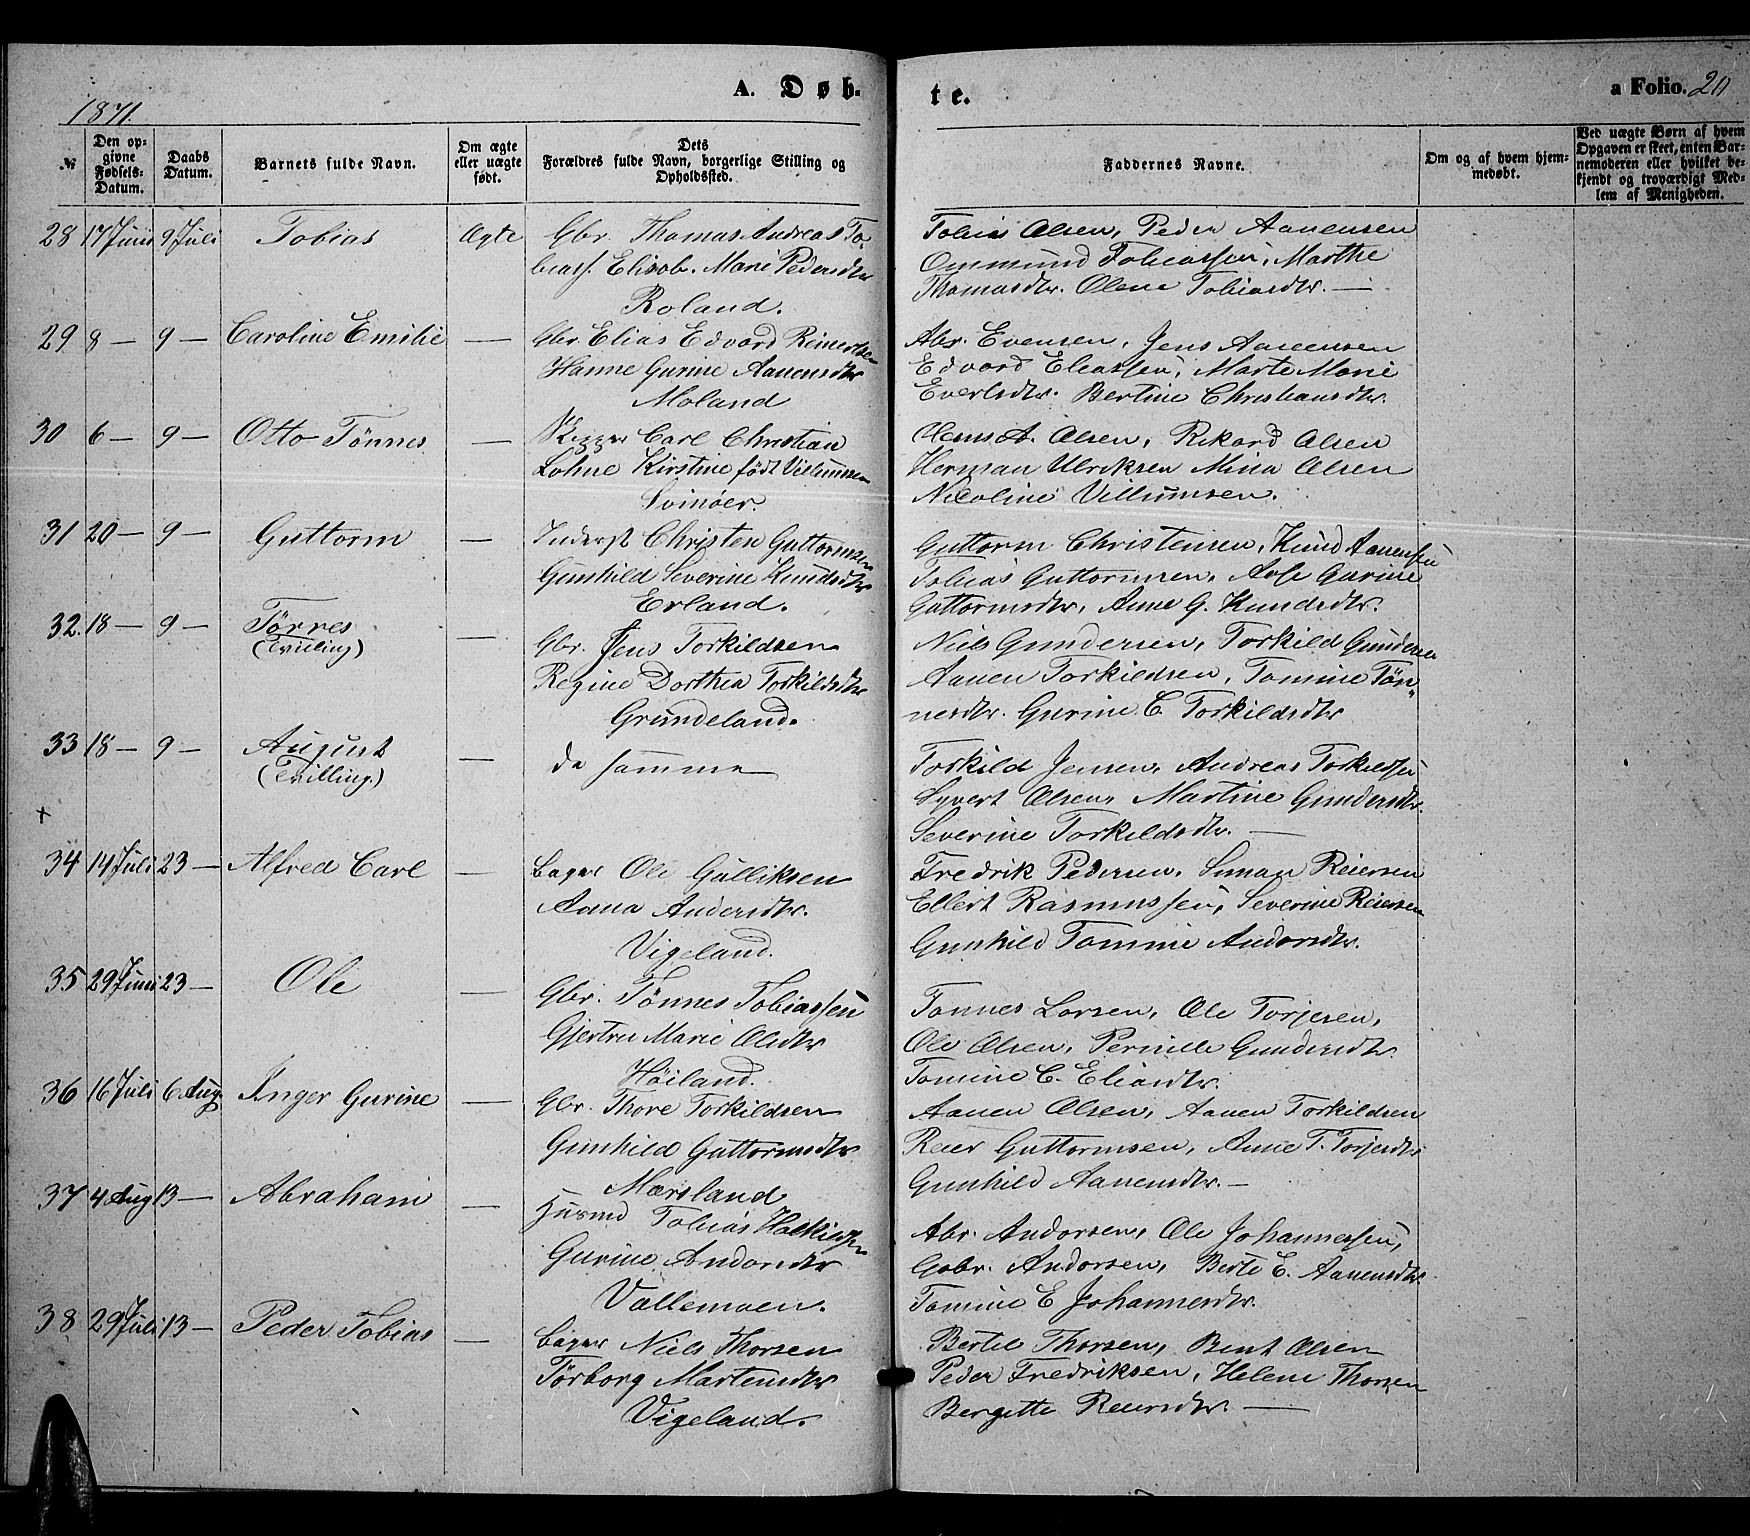 1871.
A. Døb-
te.
a Folio. 20
№
Den op-
givne
Fødsels-
Datum.
Daabs
Datum.
Barnets fulde Navn.
Om ægte
eller uægte
født.
Dets
Forældres fulde Navn, borgerlige Stilling og
Opholdssted.
Faddernes Navne.
Om og af hvem hjem-
medøbt.
Ved uægte Børn af hvem
Opgaven er skeet, enten Bar-
nemoderen eller hvilket be-
kjendt og troværdigt Med-
lem af Menigheden.
28 17 Juni 9 Juli Tobias Ægte Gbr. Thomas Andreas To-
biass. Elisab. Marie Pedersdtr
Roland.
Tobias Olsen, Peder Aanensen
Ommund Tobiassen, Marthe
Thomasdtr. Olene Tobiasdtr. —
29 8 — 9 — Caroline Emilie — Gbr Elias Edvard Reinertsen
Hanne Gurine Aanensdtr
Moland
Abr. Evensen, Jens Aanensen
Edvard Eliassen, Marte Marie
Evertsdtr. Bertine Christiansdtr.
30 6 — 9 — Otto Tönnes — Skipper Carl Christian
Lohne Kirstine født Villumsen
Svinöer.
Hans A. Olsen, Rikard Olsen
Herman Ulriksen Mina Olsen
Nicoline Villumsen.
31 20 — 9 — Guttorm — Inderst Christen Guttormsen
Gunhild Severine Knudsdtr
Erland.
Guttorm Christensen, Knud Aanensen
Tobias Guttormsen, Aase Gurine
Guttormsdtr, Anne G. Knudsdtr.
32. 18 — 9 — Törres
(Tvilling) — Gbr. Jens Torkildsen
Regine Dorthea Torkildsdtr
Grundeland.
Niels Gundersen, Torkild Gundersen
Aanen Torkildsen, Tomine Tön-
nesdtr. Gurine C. Torkildsdtr
33 18 — 9 — August
(Tvilling) — de samme
Torkild Jensen, Andreas Torkildsen
Syvert Olsen, Martine Gundersdtr.
Severine Torkildsdtr. —
+
34 14 Juli 23 — Alfred Carl — Bager Ole Gulliksen
Anna Andersdtr.
Vigeland.
Fredrik Pedersen, Simon Reiersen
Ellert Rasmussen, Severine Reiersen
Gunhild Tomine Andorsdtr.
35 29 Juni 23 — Ole — Gbr. Tönnes Tobiassen
Gjertru Marie Olsdtr
Höiland.
Tønnes Larsen, Ole Torjesen,
Ole Olsen, Pernille Gundersdtr.
Tomine C. Eliasdtr.
36 16 Juli 6 Aug. Inger Gurine — Gbr. Thore Torkildsen
Gunhild Guttormsdtr
Mærsland
Aanen Olsen, Aanen Torkildsen
Reier Guttormsen, Anne T. Torjesdtr
Gunhild Aanensdtr. —
37 4 Aug 13 — Abraham — Husmd Tobias
Gurine Andorsdtr
Vallemoen.
Abr. Andorsen, Ole Johannessen,
Gabr. Andorsen, Berte E. Aanensdtr.
Tomine E Johannesdtr.
38 29 Juli 13 — Peder Tobias — Bager Niels Thorsen
Törborg Martensdtr
Vigeland.
Bertel Thorsen, Bent Olsen
Peder Fredriksen, Helene Thorsen
Bergitte Reiersdtr. —